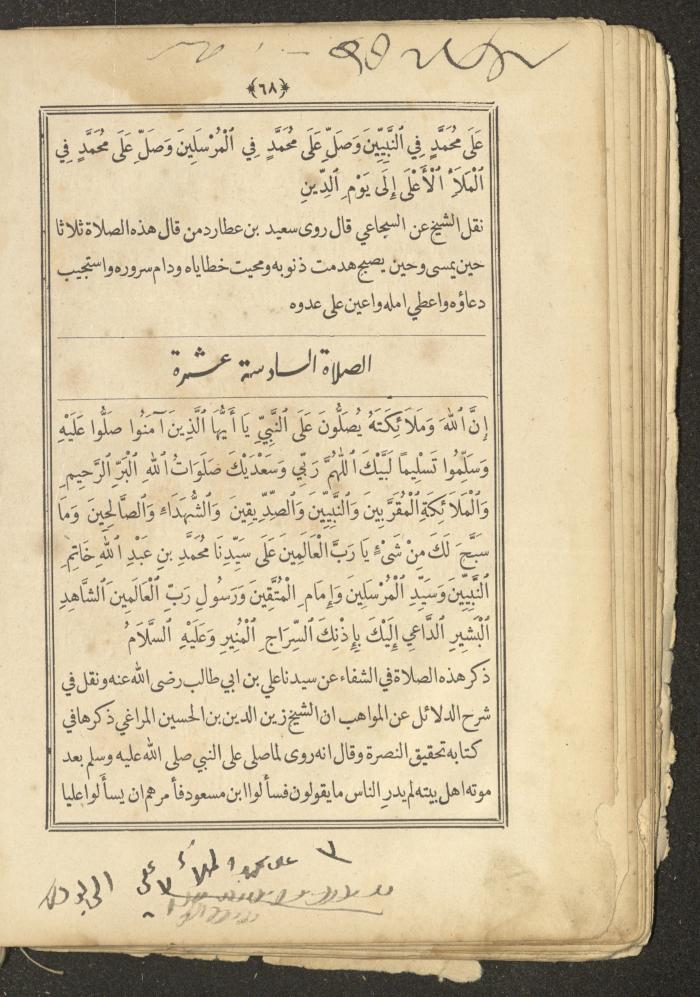 ﴿٦٨﴾
عَلَى مُحَمَّدٍ فِي ٱلنَّبِيِّينَ وَصَلِّ عَلَى مُحَمَّدٍ فِي ٱلْمُرْسَلِينَ وَصَلِّ عَلَى مُحَمَّدٍ فِي
ٱلْمَلَأِ ٱلْأَعْلَى إِلَى يَوْمِ ٱلدِّينِ
نقل الشيخ عن السجاعي قال روى سعيد بن عطارد من قال هذه الصلاة ثلاثا
حين يمسى وحين يصبح هدمت ذنوبه ومحيت خطاياه ودام سروره واستجيب
دعاؤه واعطي امله واعين على عدوه
الصلاة السادسة عشرة
إِنَّ ٱللهَ وَمَلَائِكَتَهُ يُصَلُّونَ عَلَى ٱلنَّبِيِّ يَا أَيُّهَا ٱلَّذِينَ آمَنُوا صَلُّوا عَلَيْهِ
وَسَلِّمُوا تَسْلِيماً لَبَّيْكَ ٱللهُمَّ رَبِّي وَسَعْدَيْكَ صَلَوَاتُ ٱللهِ ٱلْبَرِّ ٱلرَّحِيمِ
وَٱلْمَلَائِكَةِ ٱلْمُقَرَّبِينَ وَٱلنَّبِيِّينَ وَٱلصِّدِّيقِينَ وَٱلشُّهَدَاءِ وَٱلصَّالِحِينَ وَمَا
سَبَّحَ لَكَ مِنْ شَىْءٍ يَا رَبَّ ٱلْعَالَمِينَ عَلَى سَيِّدِنَا مُحَمَّدِ بنِ عَبْدِ ٱللهِ خَاتِمِ
ٱلنَّبِيِّينَ وَسَيِّدِ ٱلْمُرْسَلِينَ وَإِمَامِ ٱلْمُتَّقِينَ وَرَسُولِ رَبِّ ٱلْعَالَمِينَ ٱلشَّاهِدِ
ٱلْبَشِيرِ ٱلدَّاعِي إِلَيْكَ بِإِذْنِكَ ٱلسِّرَاجِ ٱلْمُنِيرِ وَعَلَيْهِ ٱلسَّلَامُ
ذكر هذه الصلاة في الشفاء عن سيدنا علي بن ابي طالب رضى الله عنه ونقل في
شرح الدلائل عن المواهب ان الشيخ زين الدين بن الحسين المراغي ذكرها في
كتابه تحقيق النصرة وقال انه روى لما صلى على النبي صلى الله عليه وسلم بعد
موته اهل بيته لم يدر الناس ما يقولون فسألوا ابن مسعود فأمرهم ان يسألوا عليا